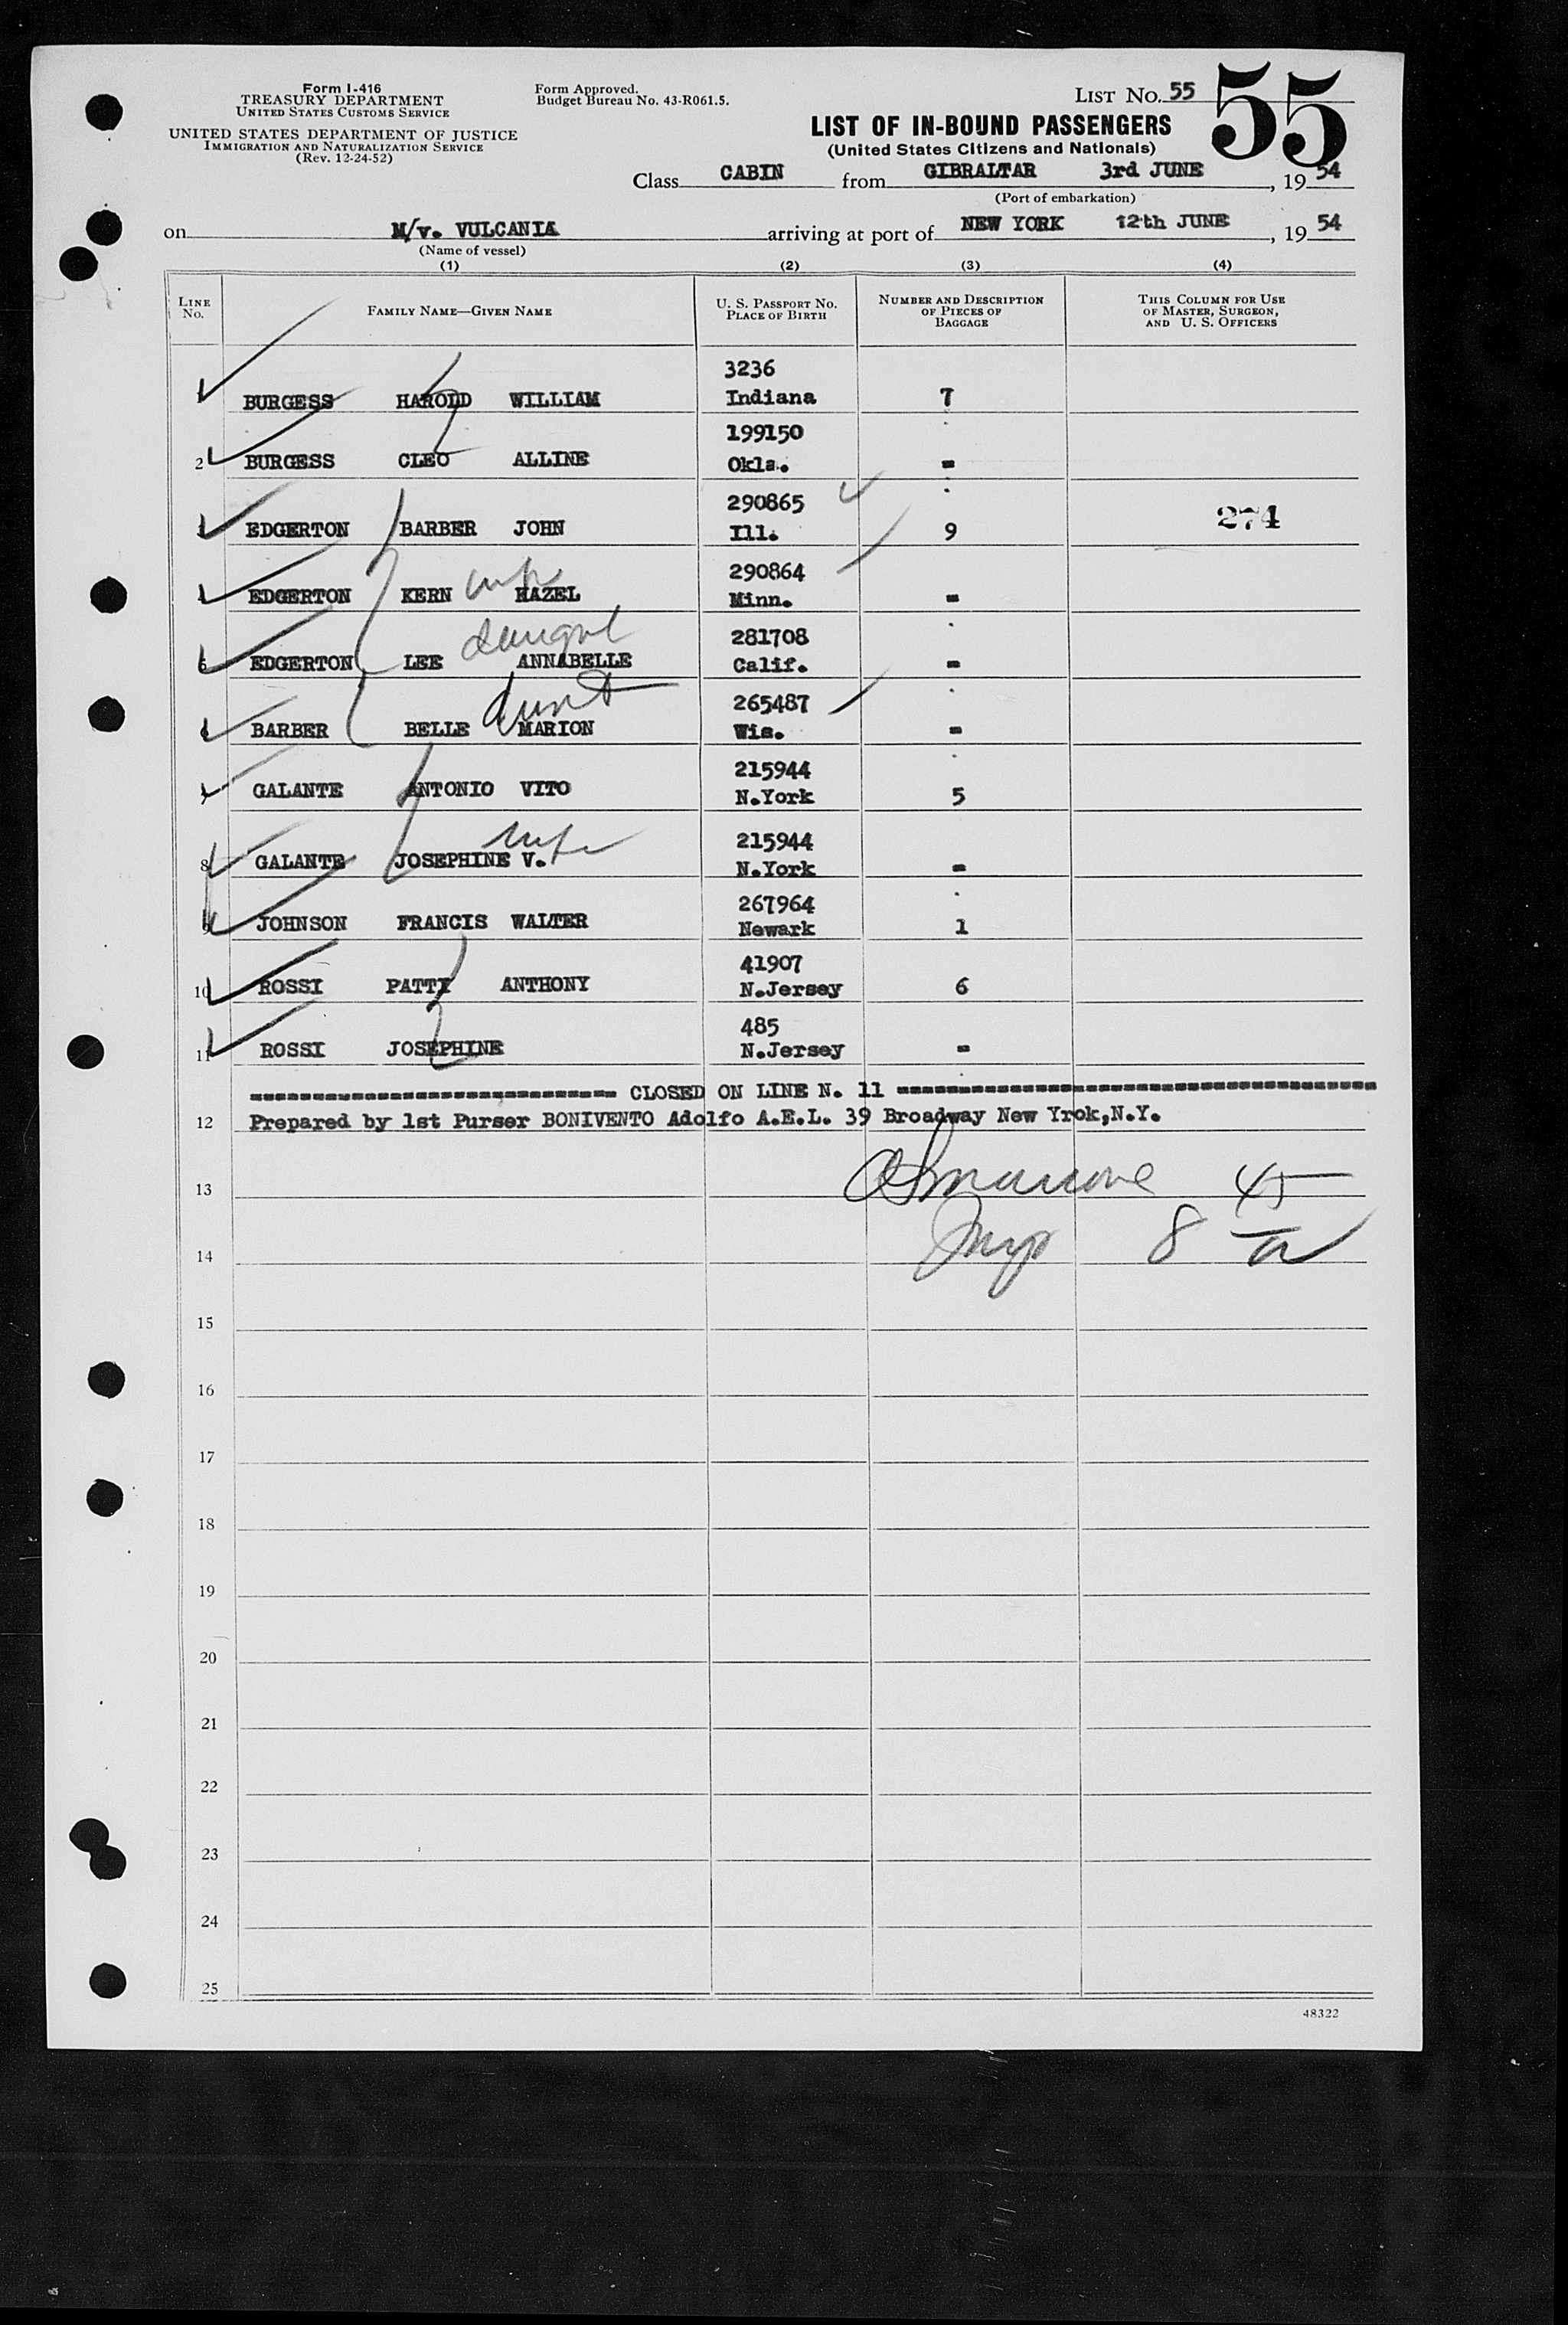 Form I-416
TREASURY DEPARTMENT
UNITED STATES CUSTOMS SERVICE
UNITED STATES DEPARTMENT OF JUSTICE
IMMIGRATION AND NATURALIZATION SERVICE
(Rev. 12-24-52)
Form Approved.
Budget Bureau No. 43-R061.5.
LIST NO. 55
55
LIST OF IN-BOUND PASSENGERS
(United States Citizens and Nationals)
Class CABIN from GIBRALTAR 3rd JUNE, 19 54
(Port of embarkation)
on M/v. VULCANIA arriving at port of NEW YORK 12th JUNE, 19 54
(Name of vessel)
(1) (2) (3) (4)
LINE NO. FAMILY NAME—GIVEN NAME U. S. PASSPORT NO. PLACE OF BIRTH NUMBER AND DESCRIPTION OF PIECES OF BAGGAGE THIS COLUMN FOR USE OF MASTER, SURGEON, AND U. S. OFFICERS
3236
1 BURGESS HAROLD WILLIAM Indiana 7
199150
2 BURGESS CLEO ALLINE Okla. -
290865
3 EDGERTON BARBER JOHN Ill. 9 274
290864
4 EDGERTON KERN wife HAZEL Minn. -
281708
5 EDGERTON LEE ANNABELLE Calif. -
265487
6 BARBER BELLE aunt MARION Wis. -
215944
7 GALANTE ANTONIO VITO N.York 5
215944
8 GALANTE JOSEPHINE V. wife N.York -
267964
9 JOHNSON FRANCIS WALTER Newark 1
41907
10 ROSSI PATTY ANTHONY N.Jersey 6
485
11 ROSSI JOSEPHINE N.Jersey -
----------------------------- CLOSED ON LINE N. 11 -----------------------------
12 Prepared by 1st Purser BONIVENTO Adolfo A.E.L. 39 Broadway New Yrok,N.Y.
13 45
14 8
15
16
17
18
19
20
21
22
23
24
25
48322